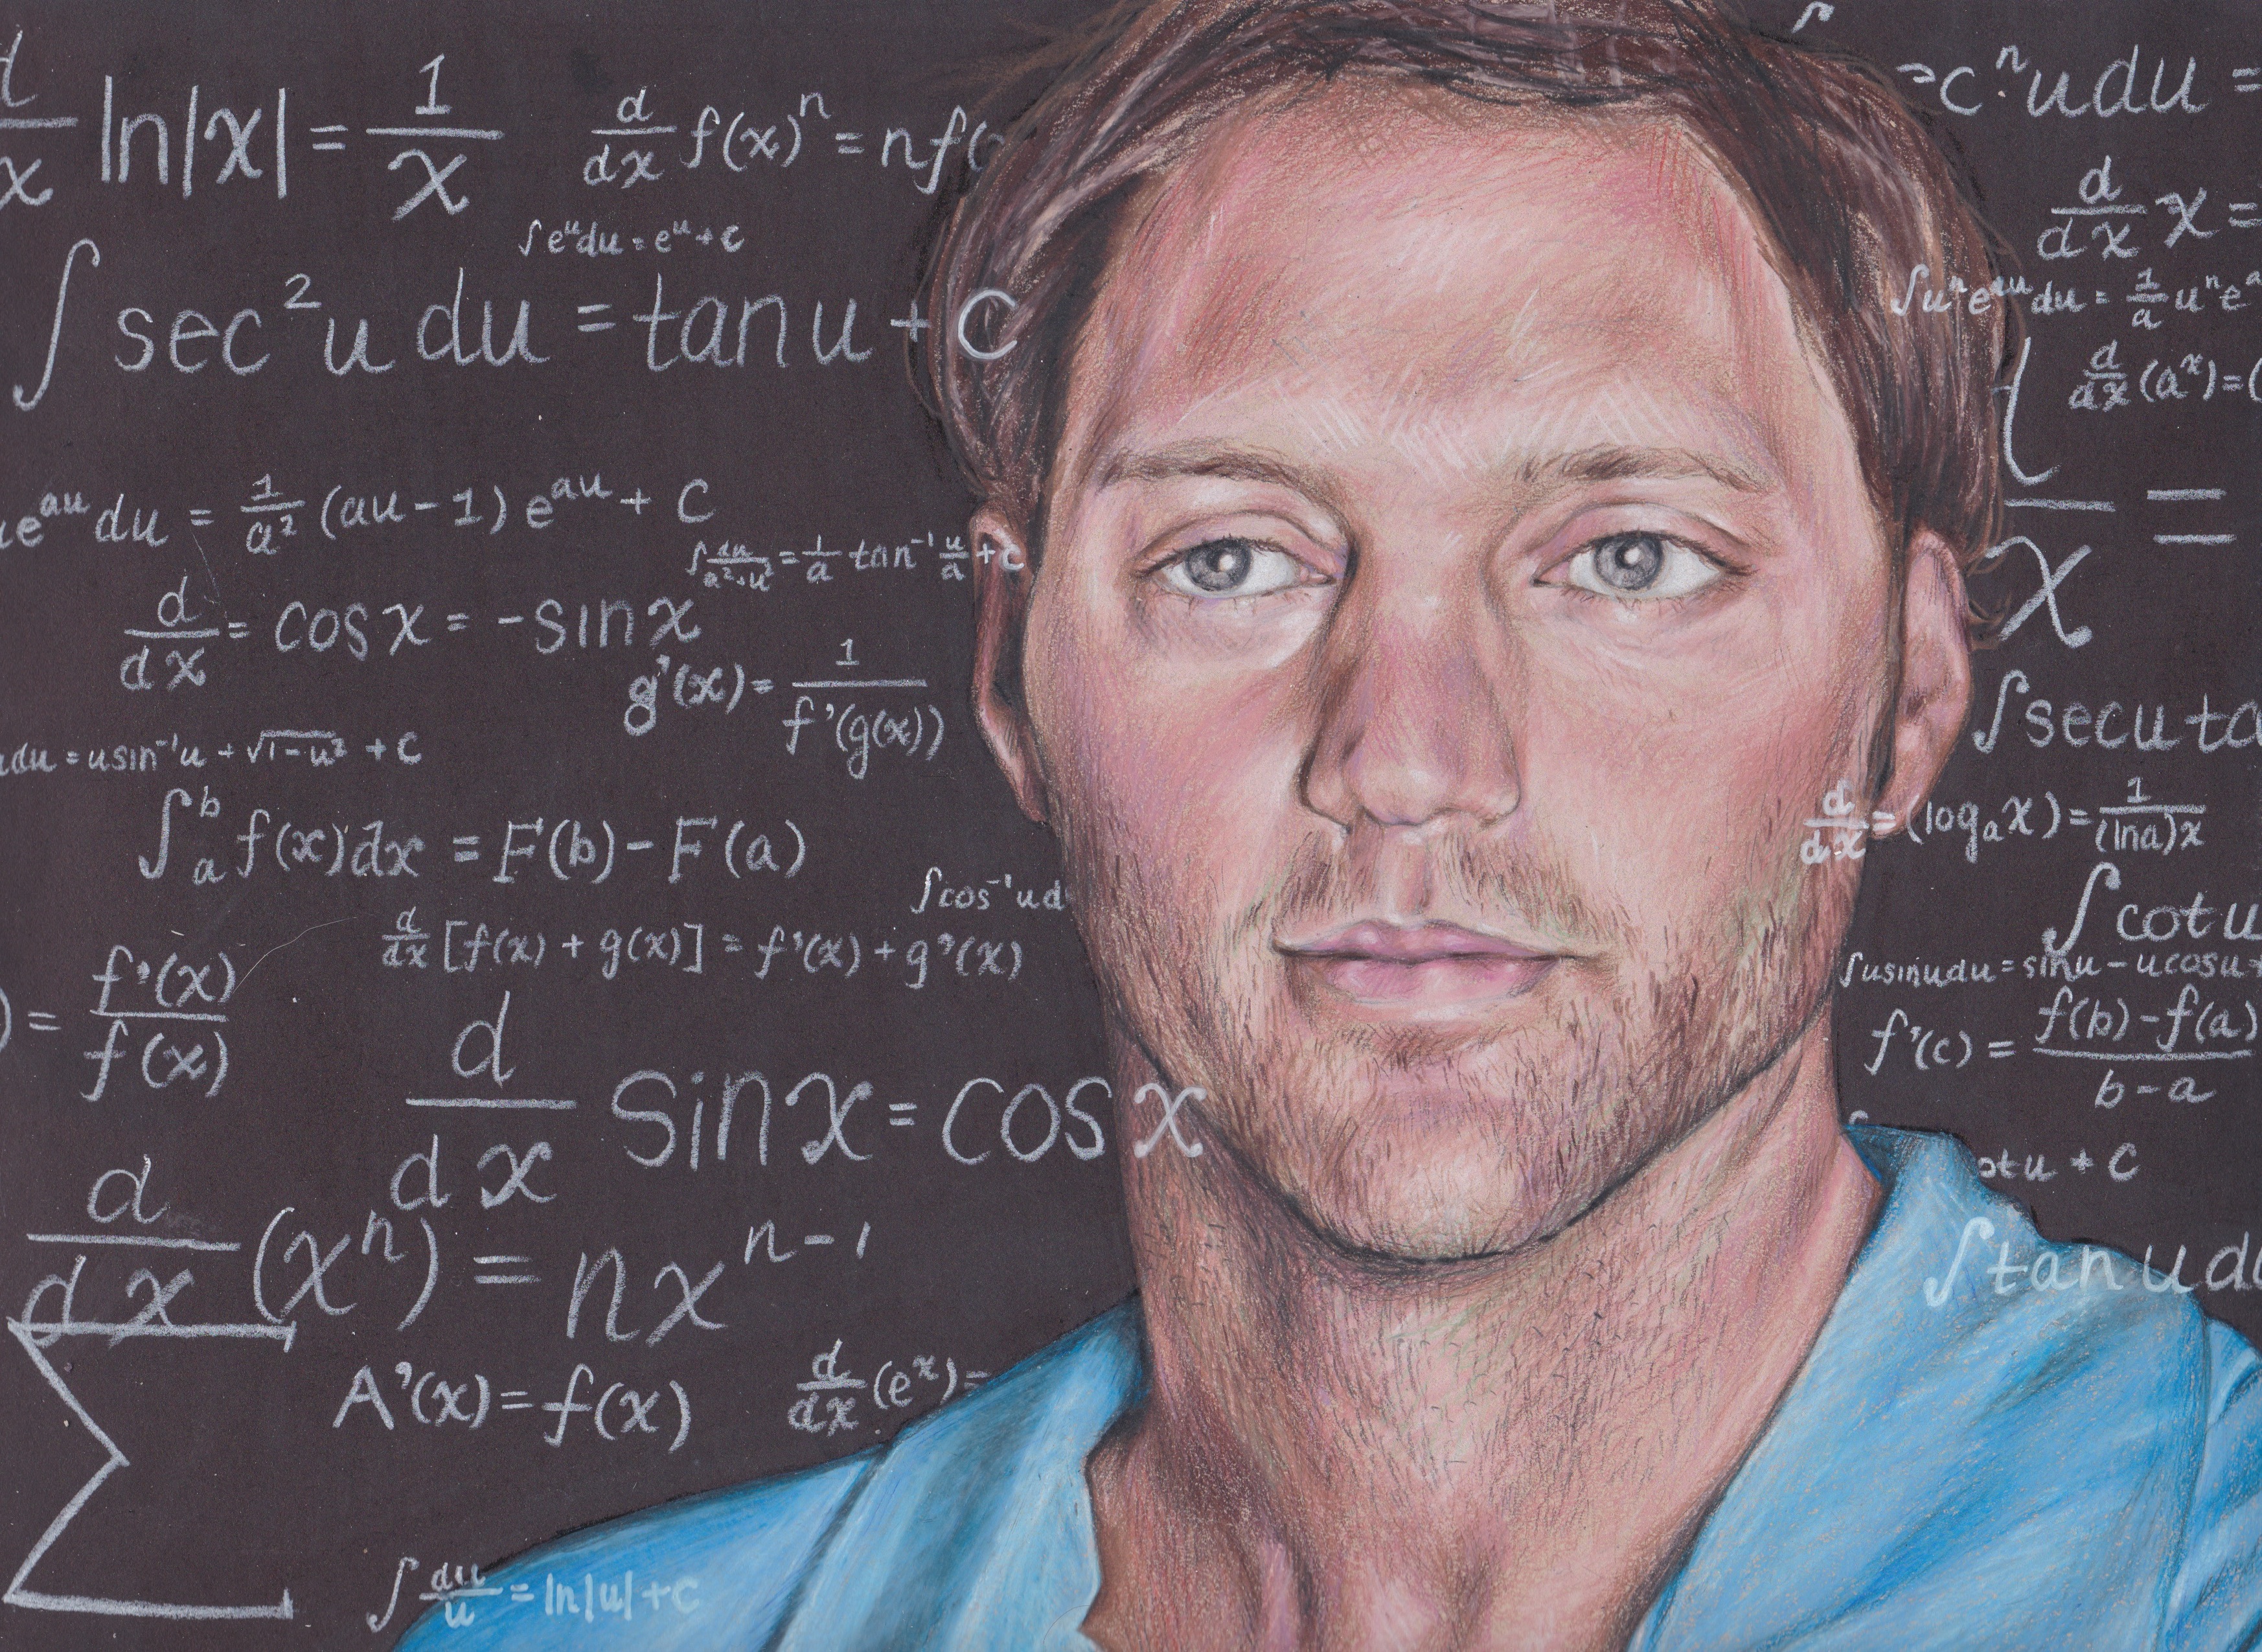 d/dx ln|x| = 1/x
d/dx f(x)ⁿ = nf(
∫eᵘdu = eᵘ + c
∫ sec²u du = tan u + C
ueᵃᵘ du = 1/a² (au - 1) eᵃᵘ + C
∫ du/a²+u² = 1/a tan⁻¹ u/a + c
d/dx = cos x = -sin x
g'(x) = 1/f'(g(x))
udu = u sin⁻¹u + √1-u² + C
∫ₐᵇ f(x)dx = F(b) - F(a)
∫cos⁻¹u d
d/dx [f(x) + g(x)] = f'(x) + g'(x)
) = f'(x)/f(x)
d/dx sin x = cos x
d/dx (xⁿ) = nxⁿ⁻¹
Σ
A'(x) = f(x)
d/dx (eˣ) =
∫ du/u = ln|u| + c
cⁿudu =
d/dx x =
∫uⁿeᵃᵘdu = 1/a uⁿeᵃ
d/dx (aˣ) = (
x =
∫sec u ta
d/dx = (logₐx) = 1/(ln a)x
∫cot u
∫u sin u du = sin u - u cos u +
f'(c) = f(b) - f(a)/b - a
otu + C
∫tan u du